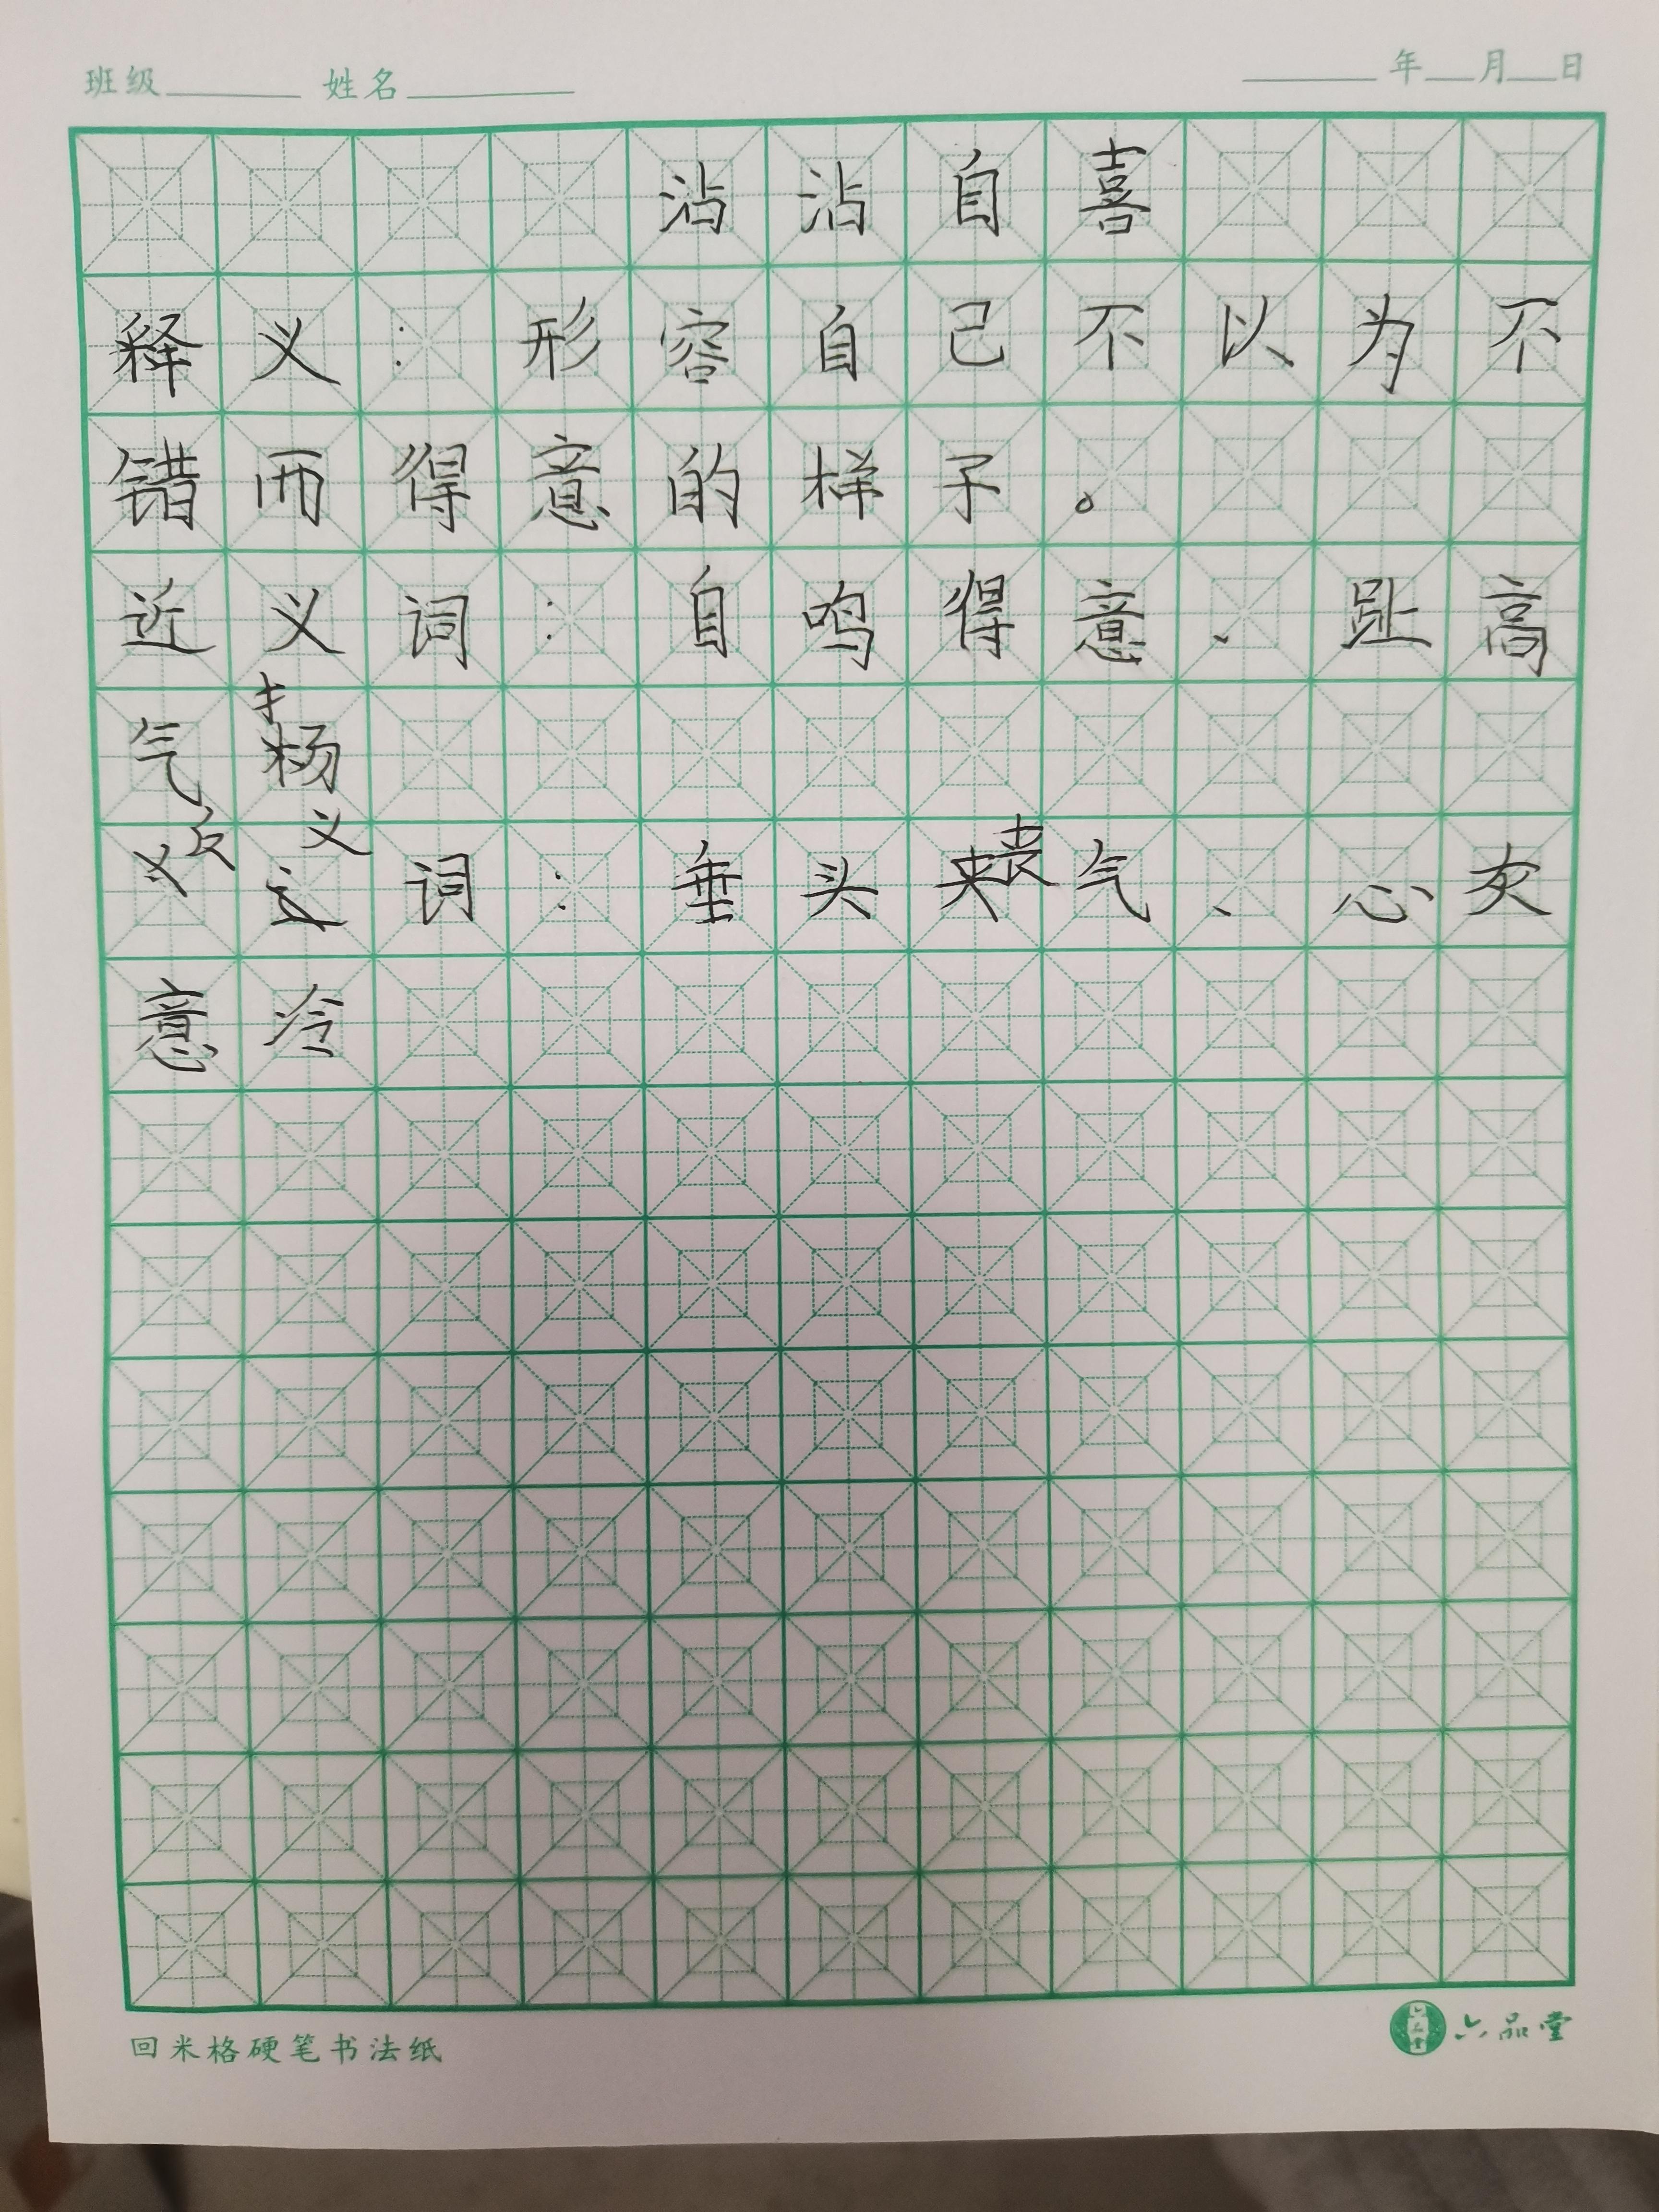 班级 姓名 年 月 日
沾沾自喜
释义：形容自己不以为不
错而得意的样子。
近义词：自鸣得意、趾高
气扬
反义词：垂头丧气、心灰
意冷
回米格硬笔书法纸 六品堂